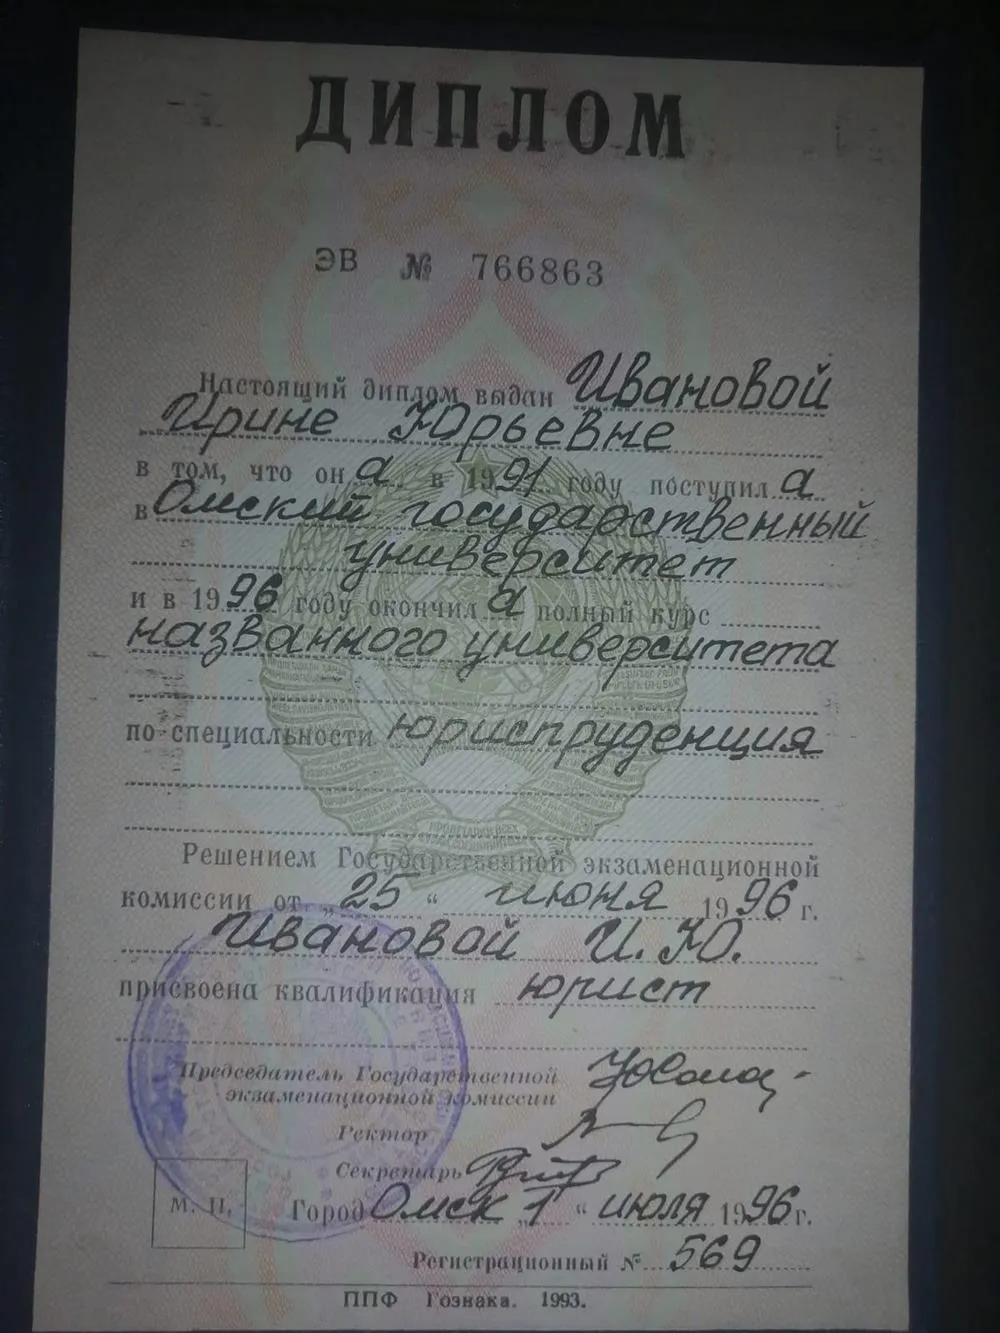 ДИПЛОМ
ЭВ № 766863
Настоящий диплом выдан Ивановой
Ирине Юрьевне
в том, что он а в 1991 году поступил а
в Омский государственный
университет
и в 1996 году окончил а полный курс
названного университета
по специальности юриспруденция
Решением Государственной экзаменационной
комиссии от „25“ июня 1996 г.
Ивановой И. Ю.
присвоена квалификация юрист
Председатель Государственной
экзаменационной комиссии
Ректор
Секретарь
М. П.
Город Омск „1“ июля 1996 г.
Регистрационный № 569
ППФ Гознака. 1993.